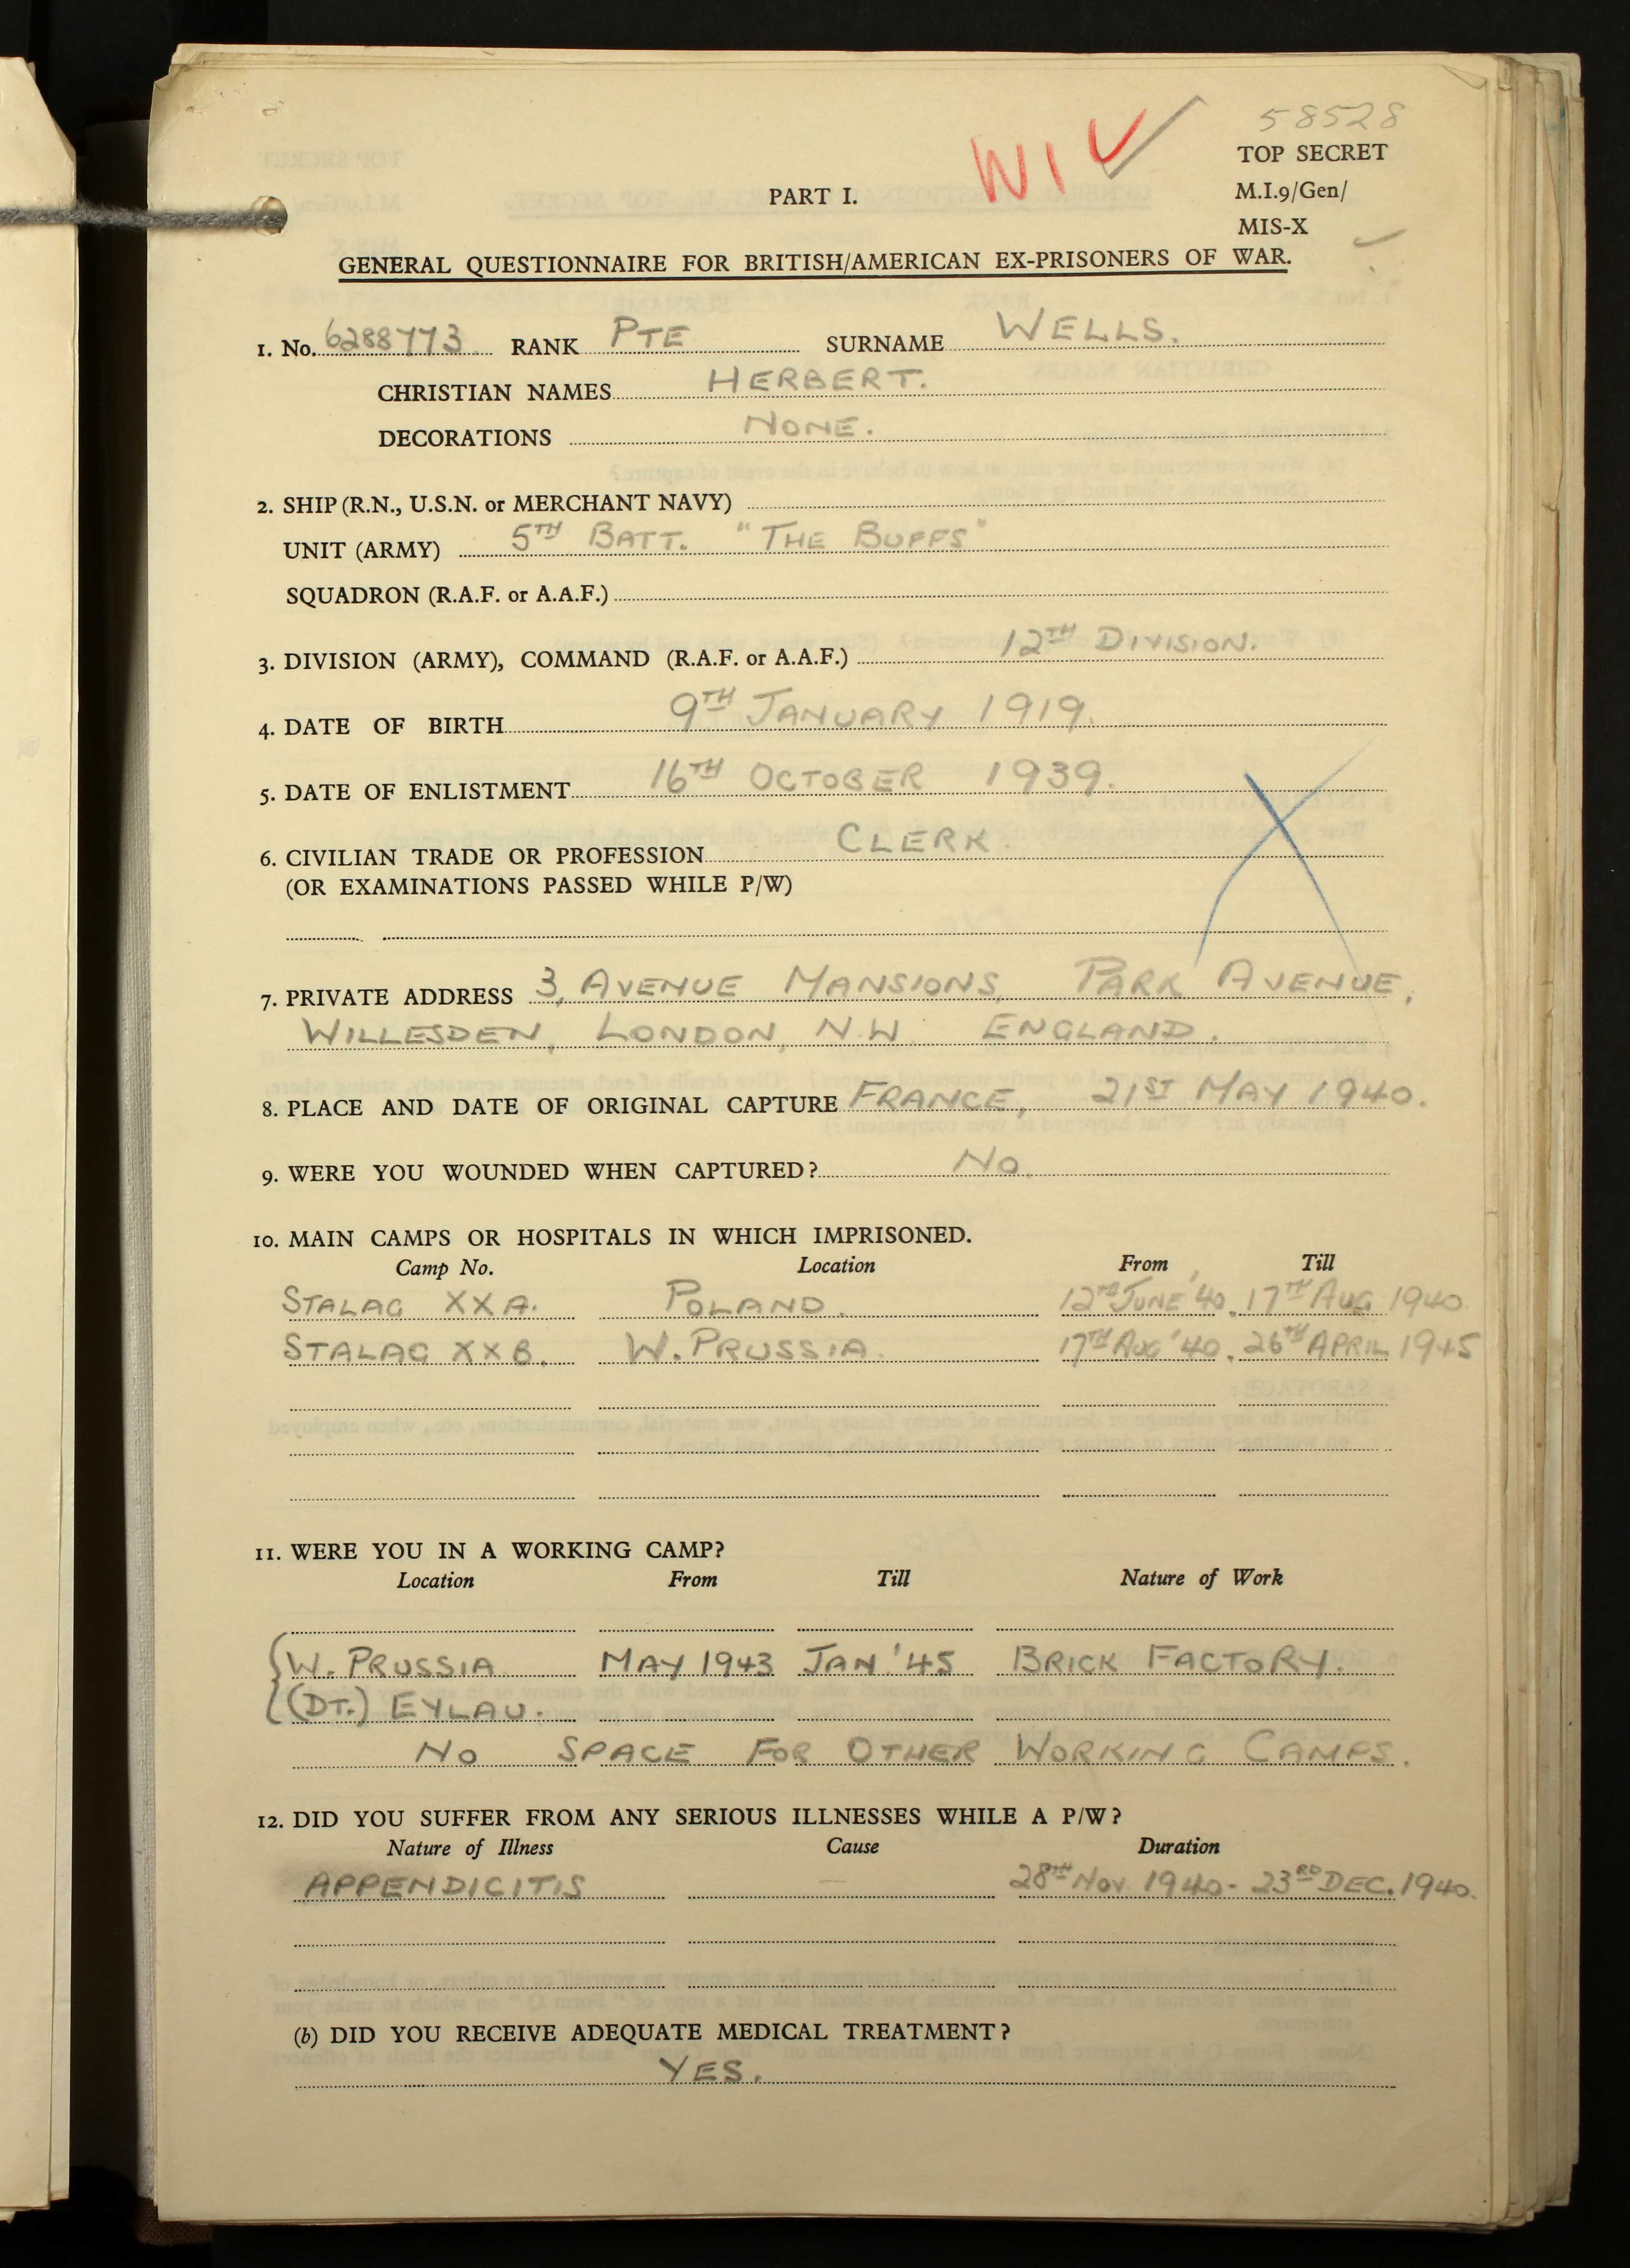 58528
TOP SECRET
M.I.9/Gen/
MIS-X
W I
PART I.
GENERAL QUESTIONNAIRE FOR BRITISH/AMERICAN EX-PRISONERS OF WAR.
1. No. 6288773 RANK PTE SURNAME WELLS.
CHRISTIAN NAMES HERBERT.
DECORATIONS NONE.
2. SHIP (R.N., U.S.N. or MERCHANT NAVY)
UNIT (ARMY) 5TH BATT. "THE BUFFS"
SQUADRON (R.A.F. or A.A.F.)
3. DIVISION (ARMY), COMMAND (R.A.F. or A.A.F.) 12TH DIVISION.
4. DATE OF BIRTH 9TH JANUARY 1919.
5. DATE OF ENLISTMENT 16TH OCTOBER 1939.
6. CIVILIAN TRADE OR PROFESSION CLERK.
(OR EXAMINATIONS PASSED WHILE P/W)
7. PRIVATE ADDRESS 3, AVENUE MANSIONS, PARK AVENUE,
WILLESDEN, LONDON, N.W. ENGLAND.
8. PLACE AND DATE OF ORIGINAL CAPTURE FRANCE, 21ST MAY 1940.
9. WERE YOU WOUNDED WHEN CAPTURED? NO.
10. MAIN CAMPS OR HOSPITALS IN WHICH IMPRISONED.
Camp No. Location From Till
STALAG XXA. POLAND. 12TH JUNE '40. 17TH AUG 1940
STALAG XXB. W. PRUSSIA. 17TH AUG '40. 26TH APRIL 1945
11. WERE YOU IN A WORKING CAMP?
Location From Till Nature of Work
W. PRUSSIA MAY 1943 JAN '45 BRICK FACTORY.
(DT.) EYLAU.
NO SPACE FOR OTHER WORKING CAMPS.
12. DID YOU SUFFER FROM ANY SERIOUS ILLNESSES WHILE A P/W?
Nature of Illness Cause Duration
APPENDICITIS — 28TH NOV. 1940 - 23RD DEC. 1940.
(b) DID YOU RECEIVE ADEQUATE MEDICAL TREATMENT?
YES.